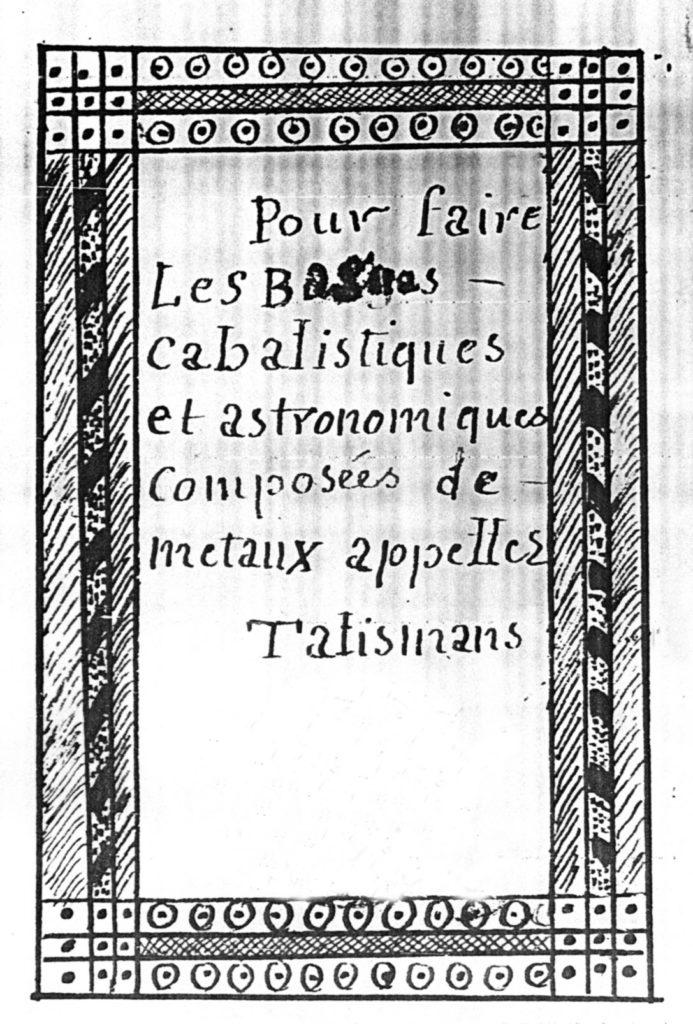 Pour faire
Les Bagues –
cabalistiques
et astronomiques
composées de –
metaux appelles
Talismans